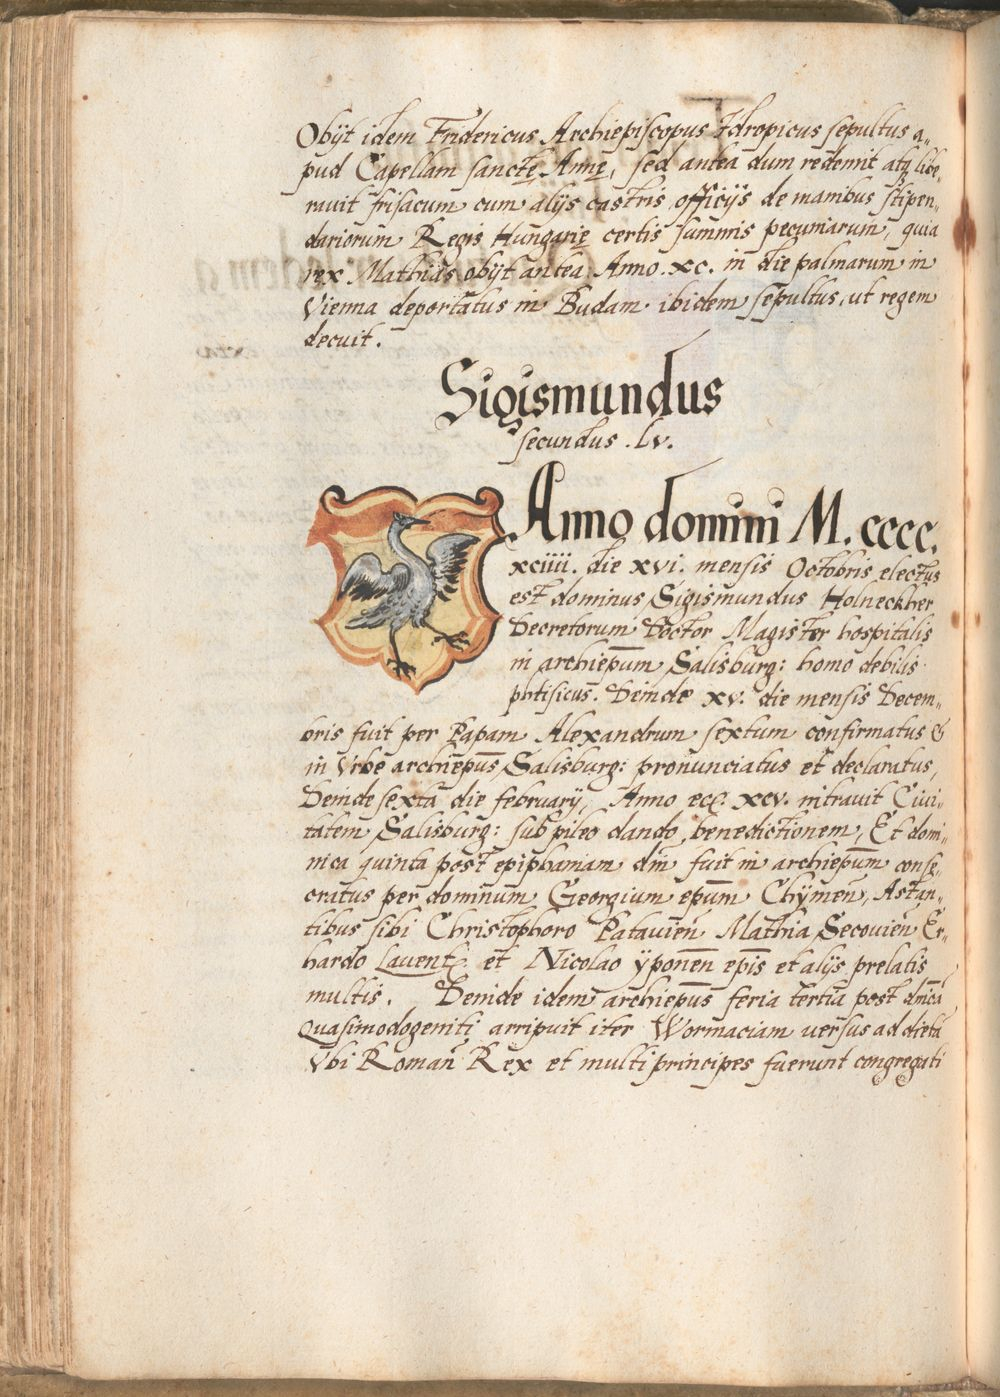 Obijt idem Fridericus Archiepiscopus Idropicus sepultus a„
pud Capellam sanctę Annę, sed antea dum redemit atq̃ libe„
rauit frisacum cum alijs castris officijs de manibus stipen„
dariorum Regis Hungarię certis summis pecuniarum, quia
rex Mathias obijt antea Anno .xc. in die palmarum in
Vienna deportatus in Budam ibidem sepultus, ut regem
decuit.
Sigismundus
secundus .Lv.
Anno domini M. cccc.
xciiii. die xvi. mensis Octobris electus
est dominus Sigismundus Holneckher
Decretorum Doctor Magister hospitalis
in archiep̄um Salisburg: homo debilis
phtisicus. Deinde xv. die mensis Decem„
bris fuit per Papam Alexandrum sextum confirmatus &
in Vrbe archiep̄us Salisburg: pronunciatus et declaratus,
Deinde sexta die february, Anno ec. xcv. intrauit Ciui„
tatem Salisburg: sub pileo dando benedictionem, Et domi„
nica quinta post epiphaniam dm̄ fuit in archiep̄um conse„
cratus per dominum Georgium ep̄um Chÿmen̄, Astan„
tibus sibi Christophoro Patauien̄ Mathia Secouien̄ Er„
hardo Lauent. et Nicolao ÿponen̄ ep̄is et alijs prelatis
multis. Deinde idem archiep̄us feria tertia post dm̄ica
Quasimodogeniti arripuit iter Wormaciam uersus ad dieta
Vbi Roman̄ Rex et multi principes fuerunt congregati